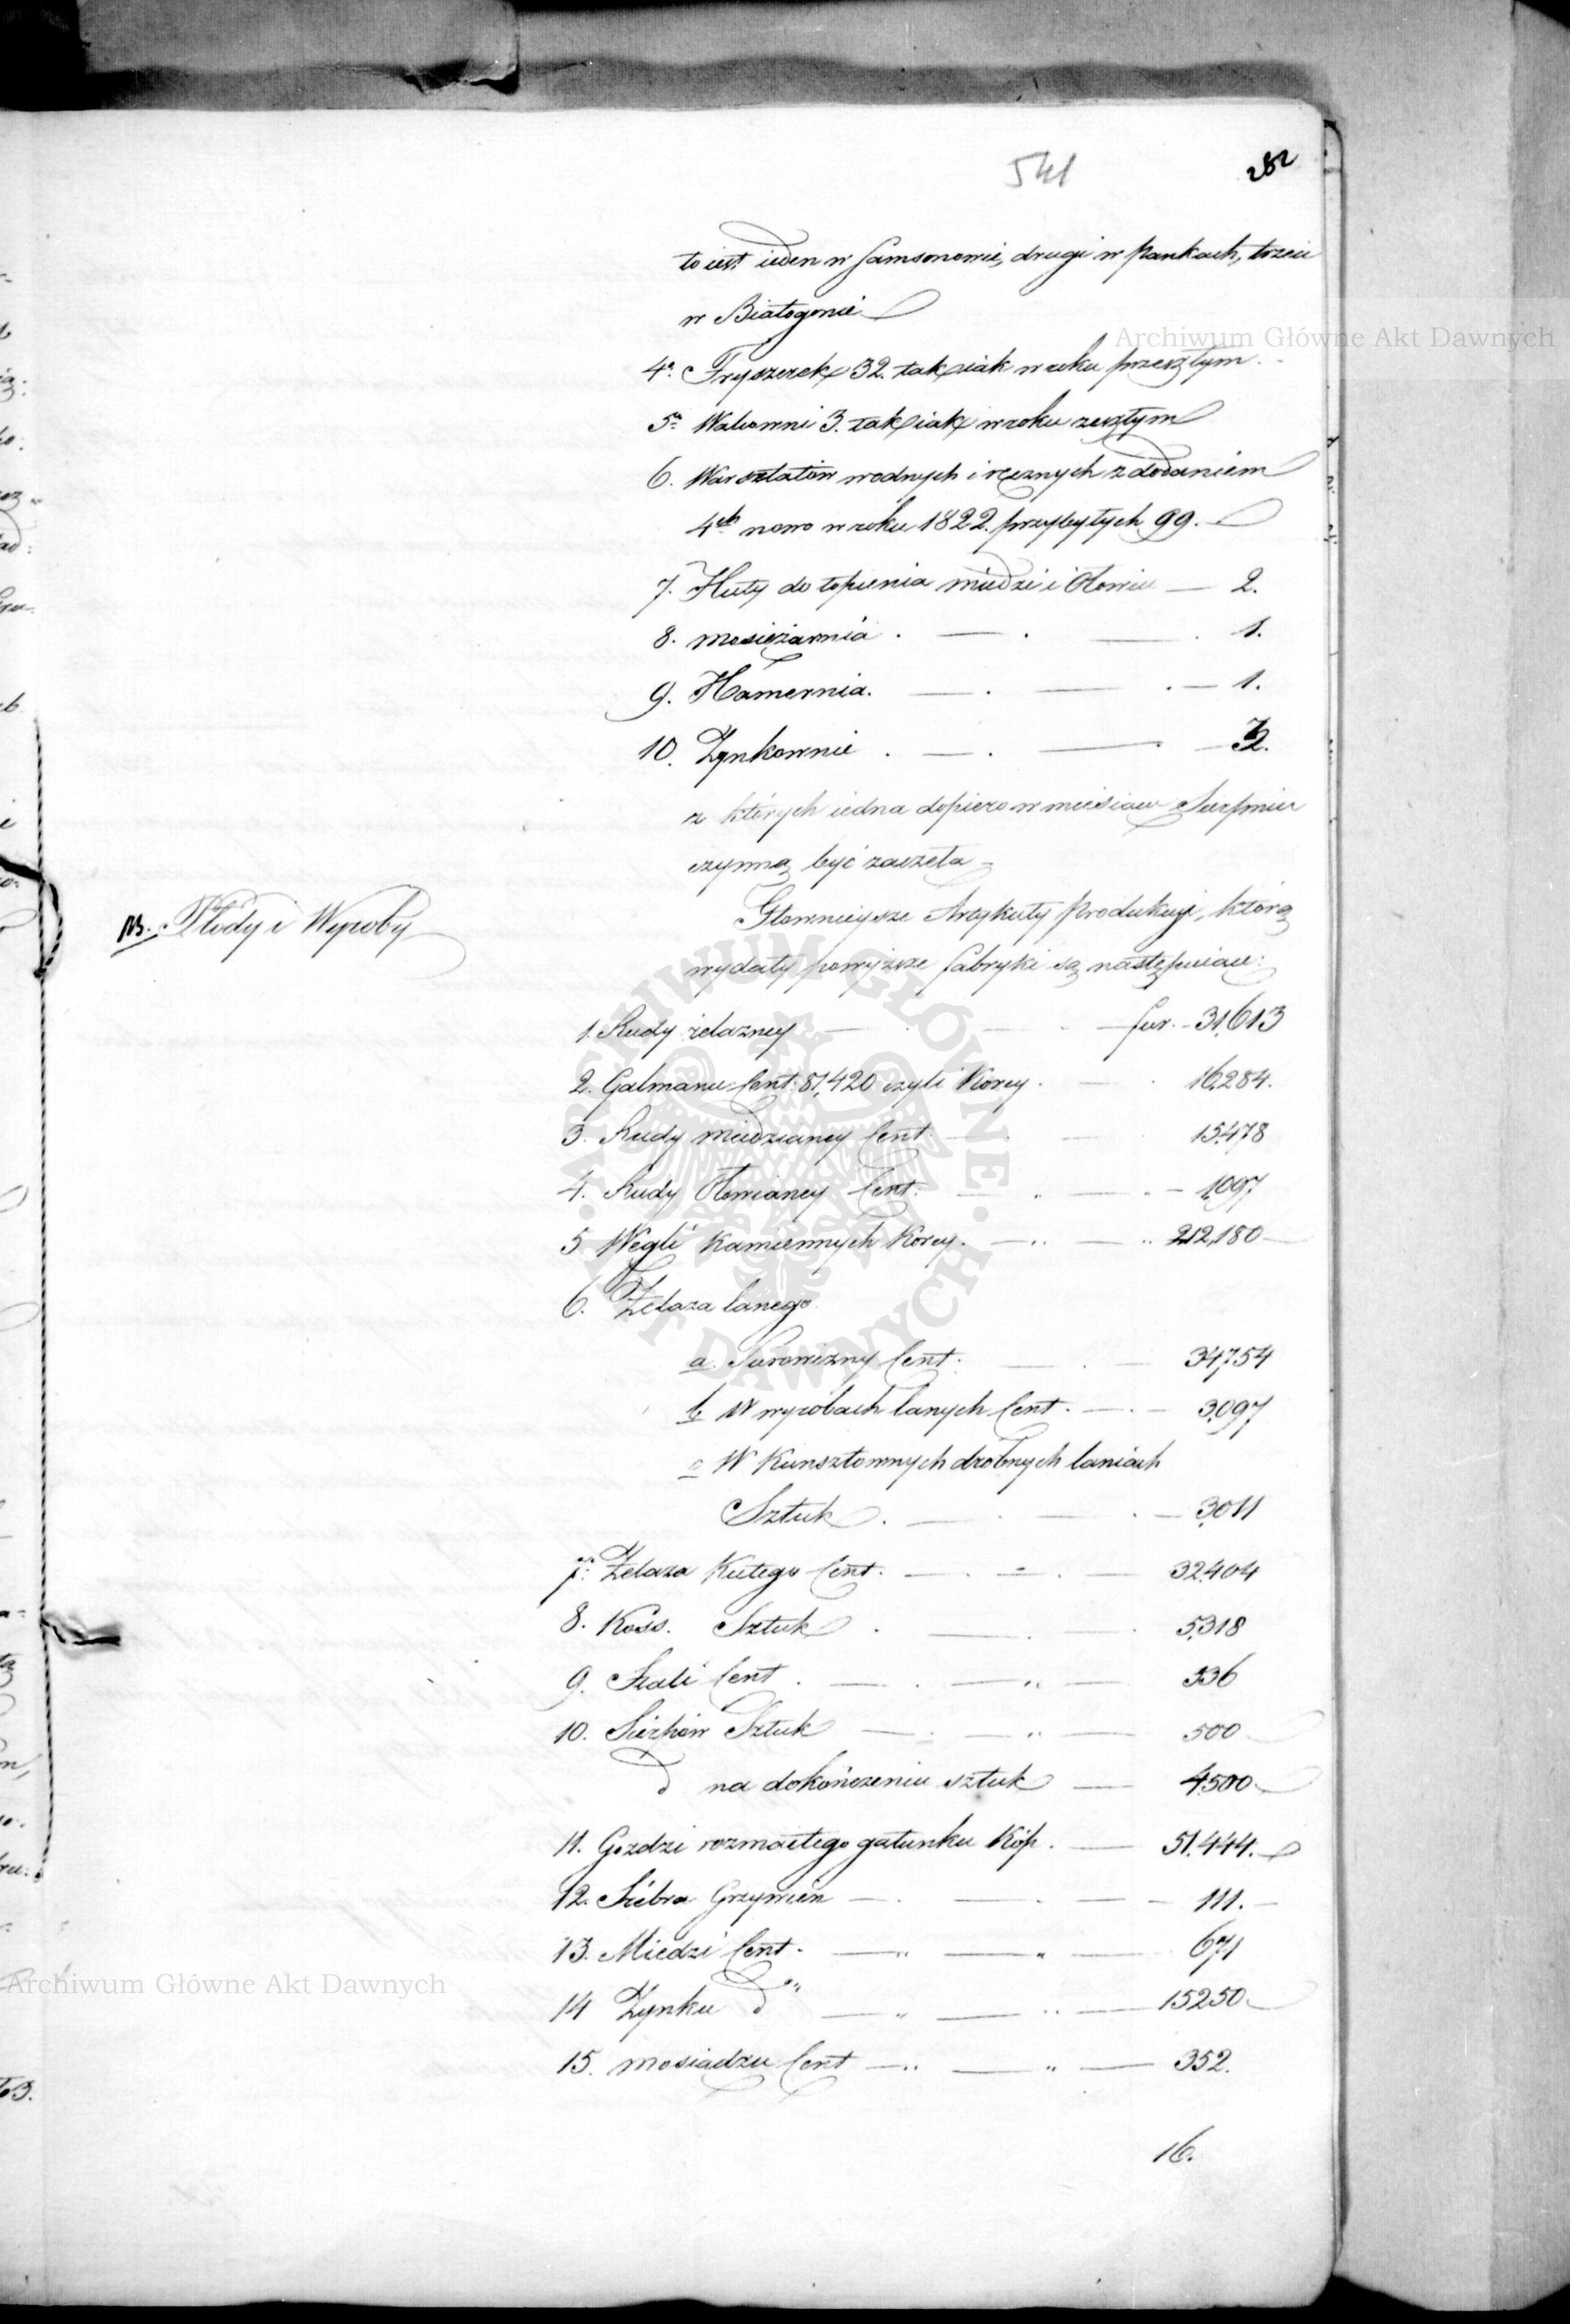 541
282
to iest ieden w Samsonowie, drugi w Pankach, trzeci
w Białogonie
4º. Fryszerek 32. tak iak w roku przeszłym.
5º Walcowni 3. tak iak w roku zeszłym
6. Warsztatów wodnych i ręcznych z dodaniem
4ch nowo w roku 1822. przybyłych 99.
7. Huty do topienia miedzi i Ołowiu — 2.
8. Mosiężarnia . — . — . 1.
9. Hamernia. — . — . — 1.
10. Zynkownie . — . — . — 2.
z których iedna dopiero w miesiącu Sierpniu
czynną być zaczęła –
B. Płody i Wyroby
Głownieysze Artykuły produkcyi, którą
wydały powyższe fabryki są następuiące:
1. Rudy żelazney — . — . — fur. - 31,613
2. Galmanu Cent: 81,420 czyli Korcy . — . 16,284.
3. Rudy miedzianey Cent. — . — 15,478
4. Rudy Ołowianey Cent. — . — . — 1,097.
5 Węgli Kamiennych Korcy. — .. — .. 212,180 —
6. Żelaza lanego
a. Surowizny Cent. — . — 34,754
b W wyrobach lanych Cent. — . — 3,097
c W Kunsztownych drobnych laniach
Sztuk . — . — . — 3,011
7º: Żelaza Kutego Cent. — . — . — 32,404
8. Koss. Sztuk . — . — . 5,318
9. Stali Cent . — . — .. — 336
10. Sierpów Sztuk — . — .. — 500
dº na dokończeniu sztuk — 4,500
11. Gozdzi rozmaitego gatunku Kóp. — 51,444.
12. Srébra Grzywien — . — . — 111. —
13. Miedzi Cent. — .. — .. — 671
14 Zynku dº .. — .. — .. — 15250
15. Mosiądzu Cent — .. — .. — 352.
16.
Archiwum Główne Akt Dawnych
Archiwum Główne Akt Dawnych
ARCHIWUM GŁÓWNE AKT DAWNYCH